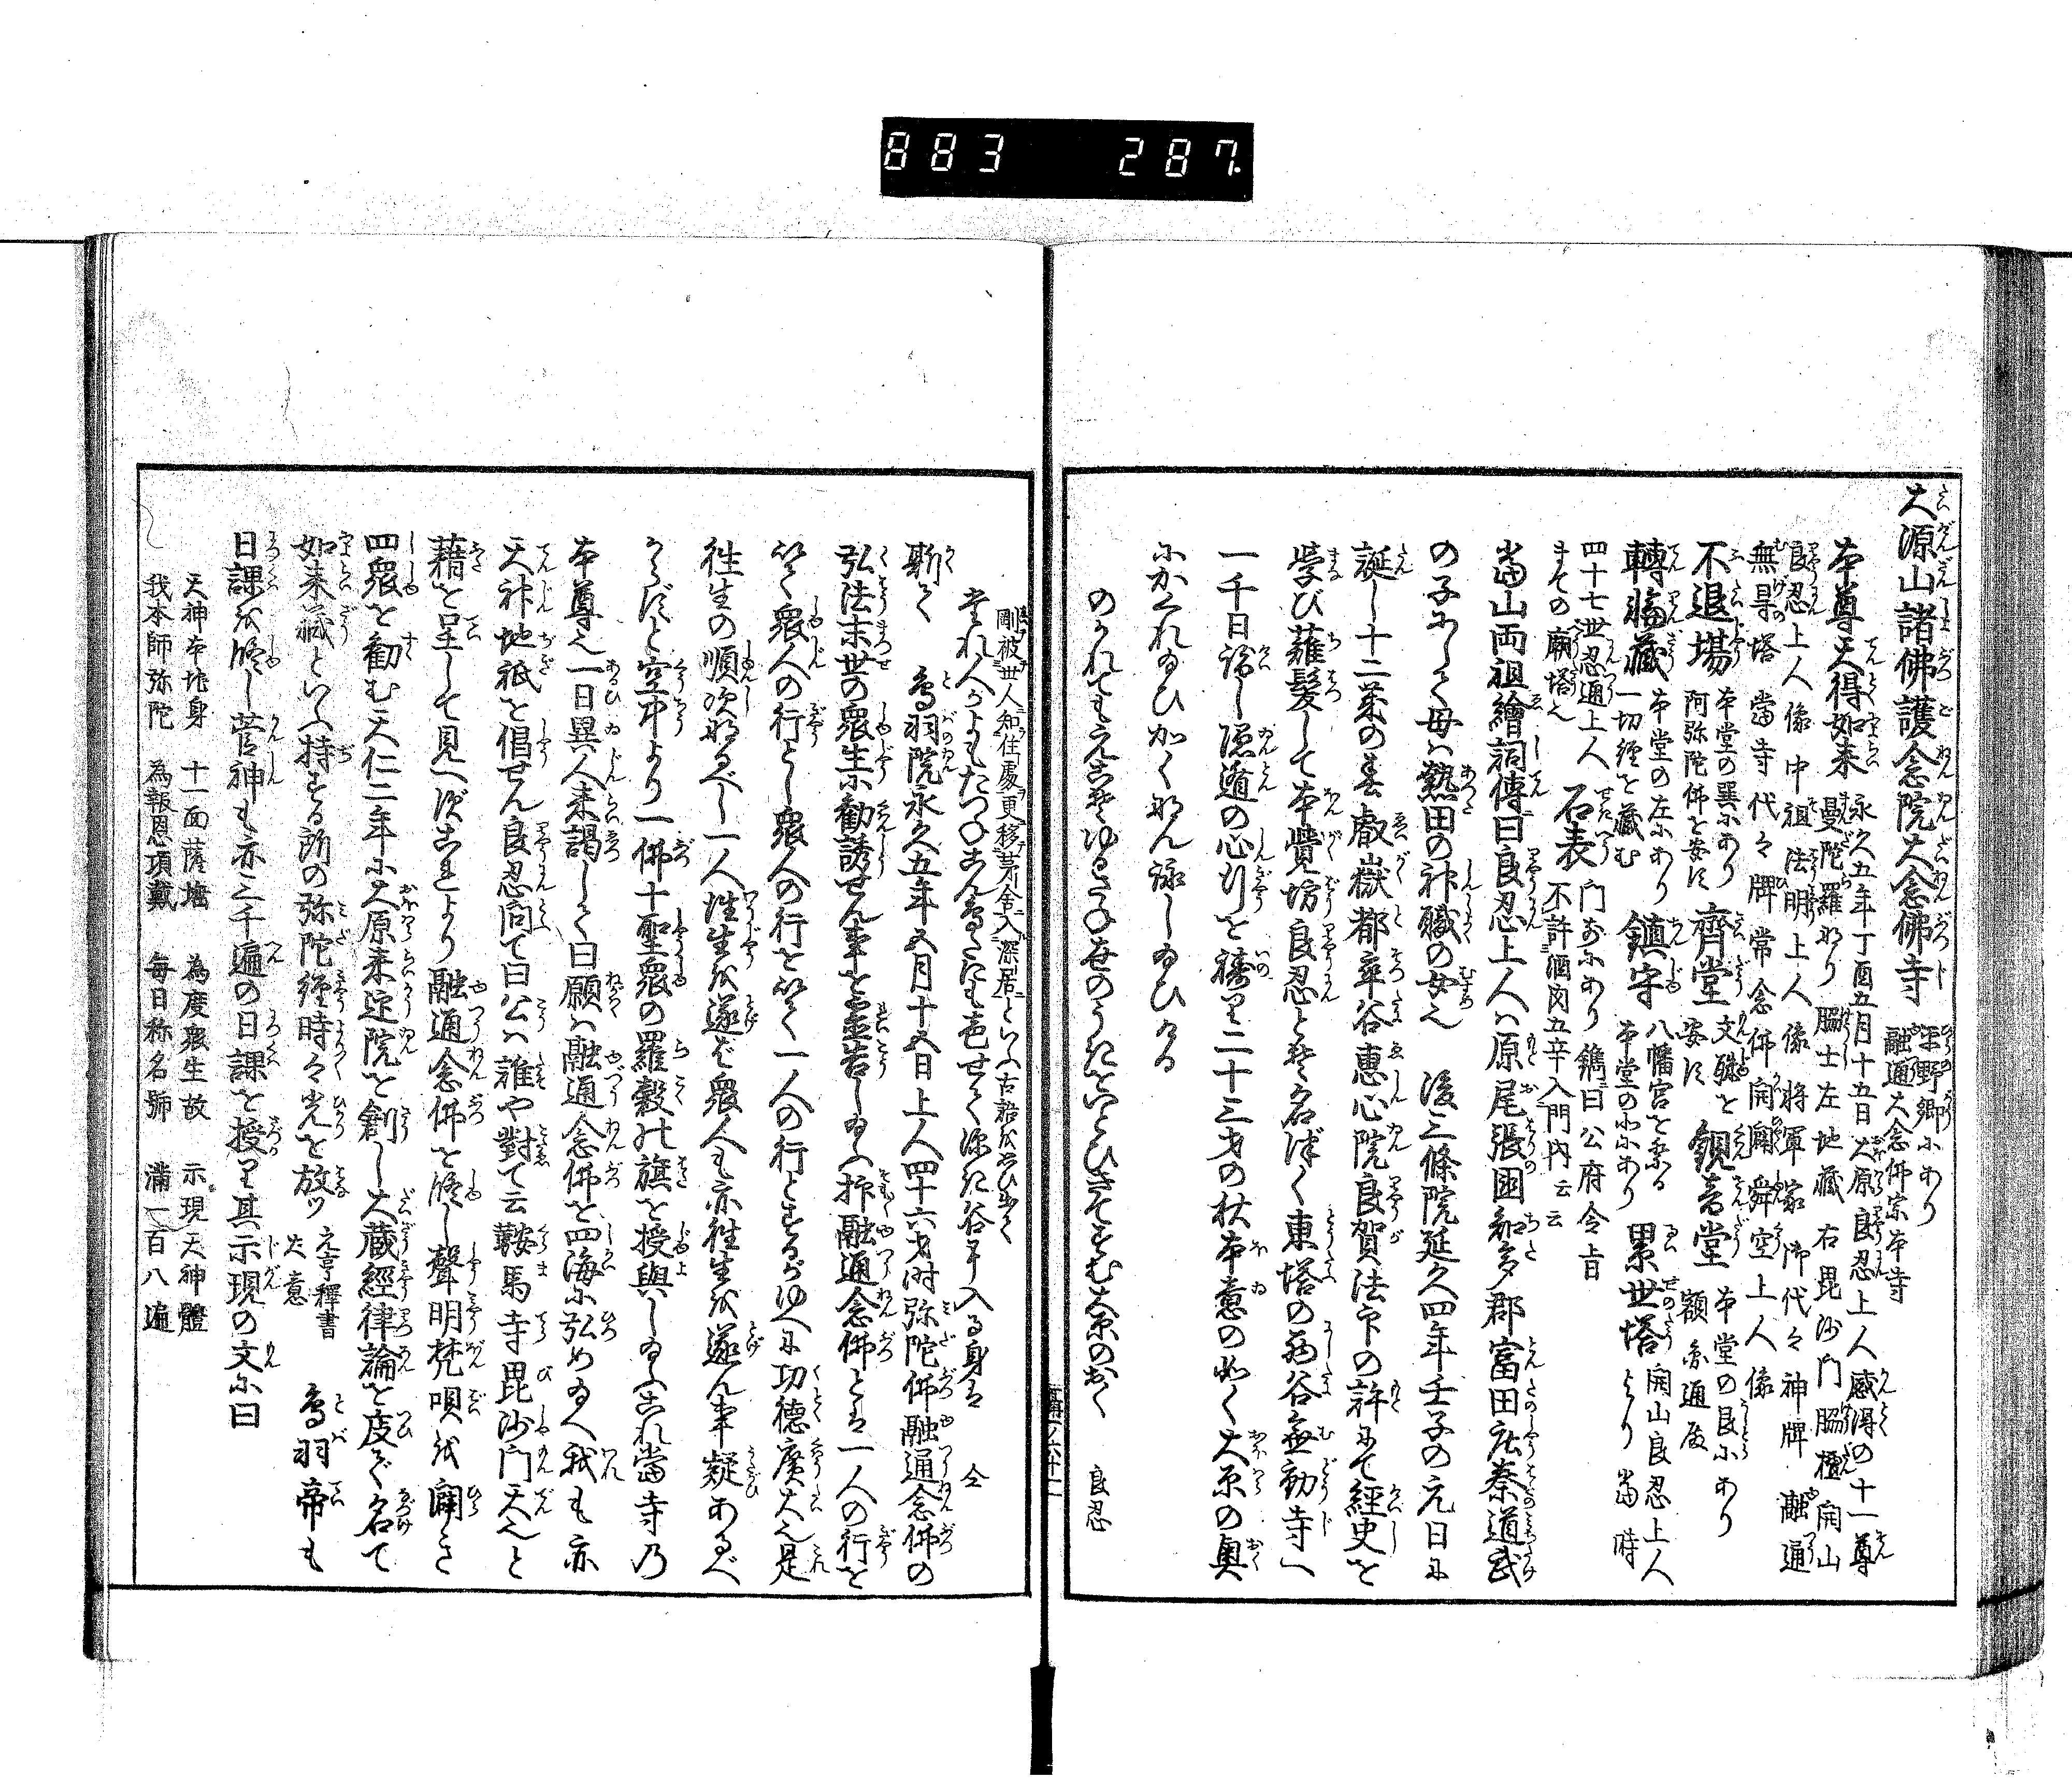 883 287
大源山諸佛護念院大念佛寺 平野郷にあり 融通大念佛宗本寺
本尊天得如来 永久五年丁酉五月十五日大原良忍上人感得の十一尊
曼陀羅なり 脇士左地蔵 右毘沙門 脇檀 開山
良忍上人像 中祖法明上人像 将軍家御代々神牌 融通
無畳塔 當寺代々牌 常念佛開闢舜空上人像
不退場 本堂の巽にあり 阿弥陀佛を安ず 齊堂 文殊を安ず 観音堂 本堂の艮にあり 額 糸通殿
轉輪蔵 本堂の左にあり 一切經を蔵む 鎮守 八幡宮を祭る 本堂の北にあり 累世塔 開山良忍上人より 當時
四十七世忍通上人までの廟塔也 石表 門前にあり 鐫曰公府令旨 不許酒肉五辛入門内云云
當山両祖繪詞傳曰良忍上人ハ原尾張國知多郡富田庄秦道武
の子にして母ハ熱田の神職の女也 後三條院延久四年壬子の元日に
誕し十二茉の春叡嶽都率谷惠心院良賀法印の許にて經史を
学び薙髪して本覺坊良忍とぞ名づく東塔の西谷無動寺へ
一千日詣し隠遁の心行を祷り二十三才の秋本意の如く大原の奥
にかくれゐひかくなん詠しゐひける
のかれてもえこそゆるさね世のうきをいとひきてすむ大原のおく 良忍
剛被世人知住處更移茅舎入深居といふ古語を思ひ出て
世
斯て 鳥羽院永久五年五月十五日上人四十六才時弥陀佛融通念佛の
弘法末世の衆生に勧誘せん事を霊告しゐふ抑融通念佛とは一人の行を
以て衆人の行とし衆人の行を以て一人の行とするがゆへに功徳廣大也是
往生の順次なるべし一人往生を遂ば衆人も亦往生を遂ん事疑あるべ
からずと空中より一佛十聖衆の羅縠の旗を授與しゐふこれ當寺乃
本尊也一日異人来謁して曰願ハ融通念佛を四海に弘めゐへ我も亦
天神地祇を倡せん良忍向て曰公ハ誰や對て云鞍馬寺毘沙門天也と
藉を呈して見へずこれより融通念佛を修し聲明梵唄を開き
四衆を勧む天仁二年に大原来迎院を創し大蔵經律論を庋て名て
如来蔵といふ持する所の弥陀經時々光を放ツ 元亨釋書大意 鳥羽帝も
日課を修し菅神も亦三千遍の日課を授り其示現の文に曰
天神本地身 十一面薩埵 為度衆生故 示現天神體
我本師弥陀 為報恩頂戴 毎日称名號 満一百八遍